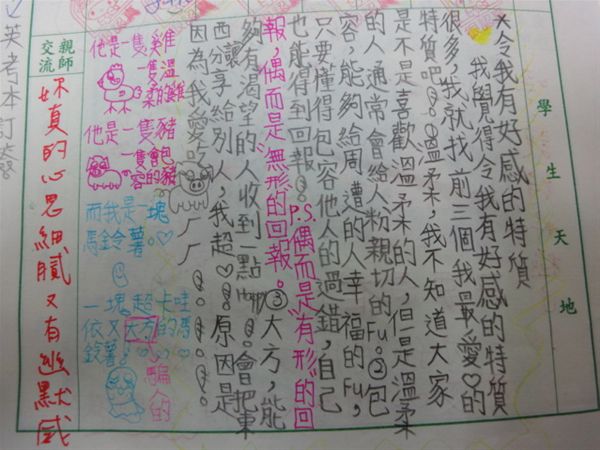 學生天地
×令我有好感的特質
我覺得令我有好感的特質
很多,我就找前三個我最愛♡的
特質吧!溫柔,我不知道大家
是不是喜歡溫柔的人,但是溫柔
的人通常會給人粉親切的Fu。②包
容,能夠給周遭的人幸福的Fu,
只要懂得包容他人的過錯,自己
也能得到回報。P.S.偶而是"有形"的回
報,偶而是"無形"的回報。③大方,能
夠讓有渴望的人收到一點Happy。會把東
西分享給別人,我超♡。原因是
因為我愛吃
他是一隻雞
一隻溫柔的雞
他是一隻豬
一隻會包容的豬
而我是一塊
馬鈴薯。♡
一塊超卡哇
依又大方的馬
鈴薯。
騙人的
親師交流
妳真的心思細膩又有幽默感
英考本訂